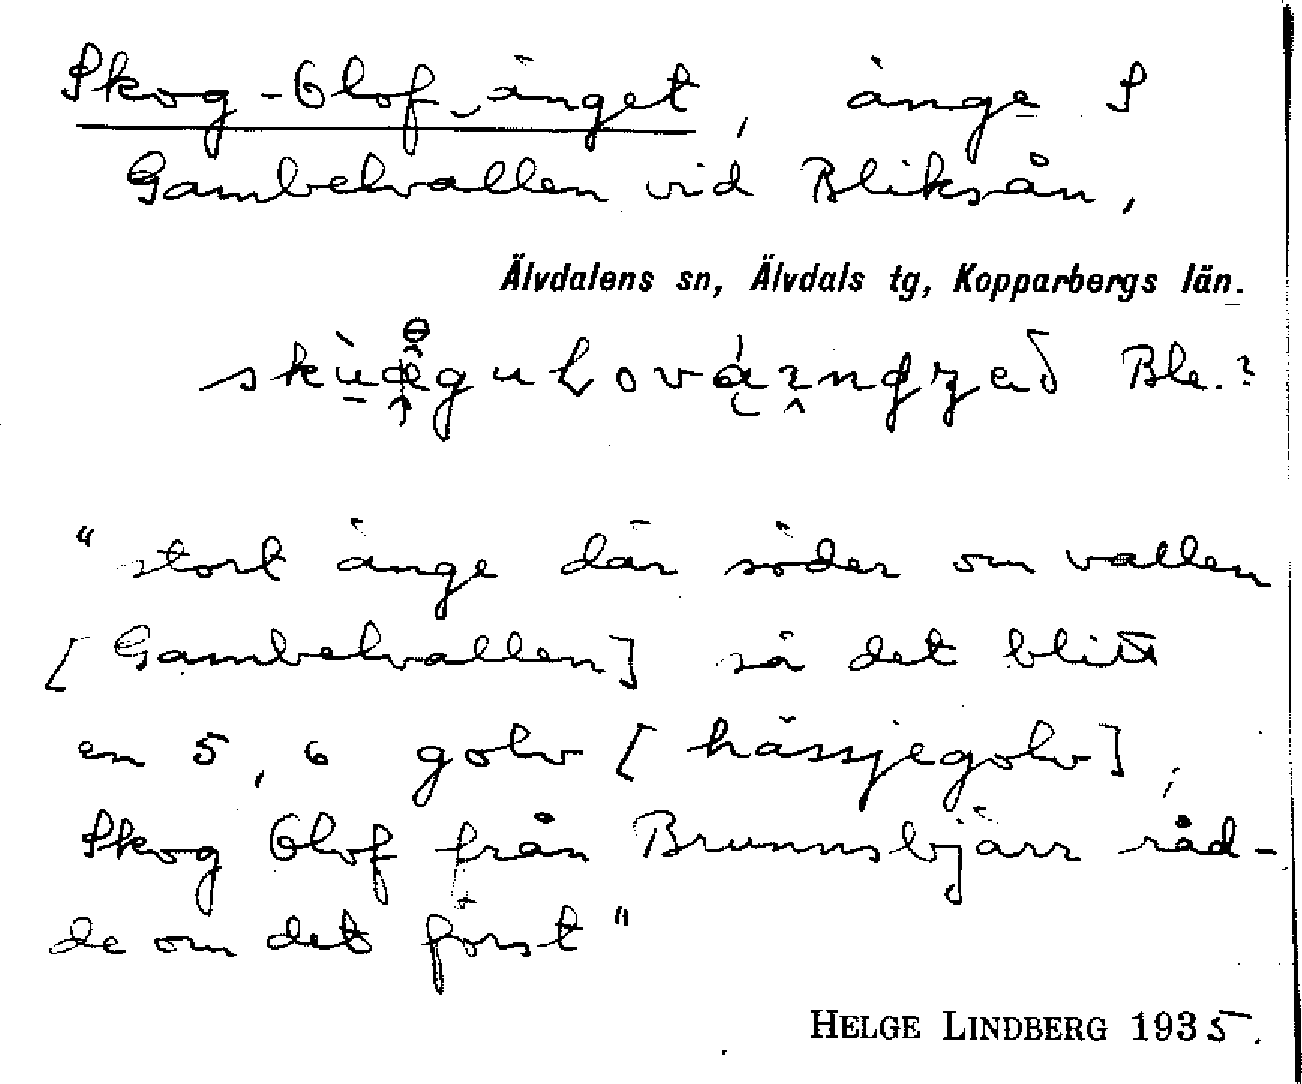 Skog-Olof-änget, änge S
Gambelvallen vid Bliksån,
Älvdalens sn, Älvdals tg, Kopparbergs län.
Ble.?
"stort änge där söder om vallen
[Gambelvallen] så det blitt
en 5, 6 golv [hässjegolv],
Skog Olof från Brunnsbjärr råd-
de om det först"
HELGE LINDBERG 1935.